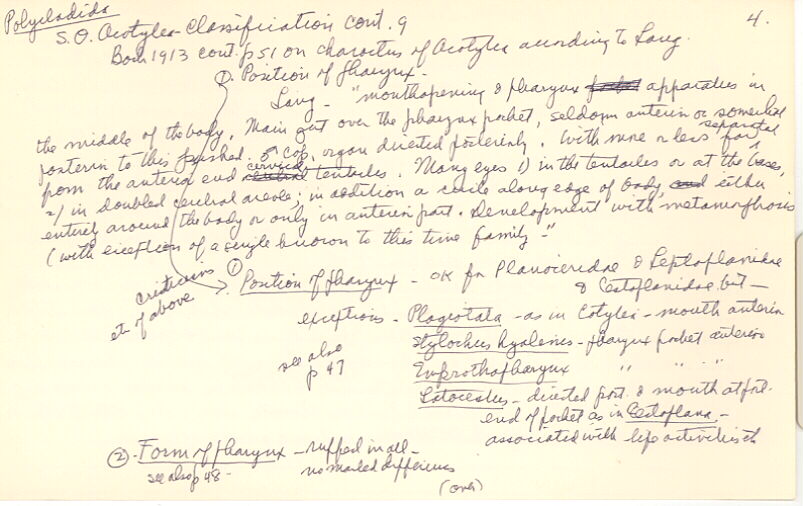 Polycladida
4.
S.O. Acotylea - Classification cont. 9
Bock 1913 cont. p 51 on characters of Acotylea according to Lang.
1. Position of pharynx -
Lang - "mouthopening & pharynx apparatus in
the middle of the body. Main gut over the pharynx pocket, seldom anterior or somewhat
posterior to this pushed. ♂ cop. organ directed posteriorly. With more or less far separated
from the anterior end cervical tentacles. Many eyes 1) in the tentacles or at the bases,
2/ in doubled central areole; in addition a circle along edge of body, either
entirely around the body or only in anterior part. Development with metamorphosis
(with exception of a single known to this time family -"
criticisms
et of above
① Position of pharynx - OK for Planoceridae & Leptoplanidae
& Cestoplanidae but -
exceptions - Plagiotata - as in Cotylea - mouth anterior
see also
p 47
Stylochus hyalinus - pharynx pocket anterior
" " "
Latocestus - directed post. & mouth at post.
end of pocket as in Cestoplana -
associated with life activities
② - Form of pharynx - ruffled in all -
see also p 48 -
no marked differences
(over)